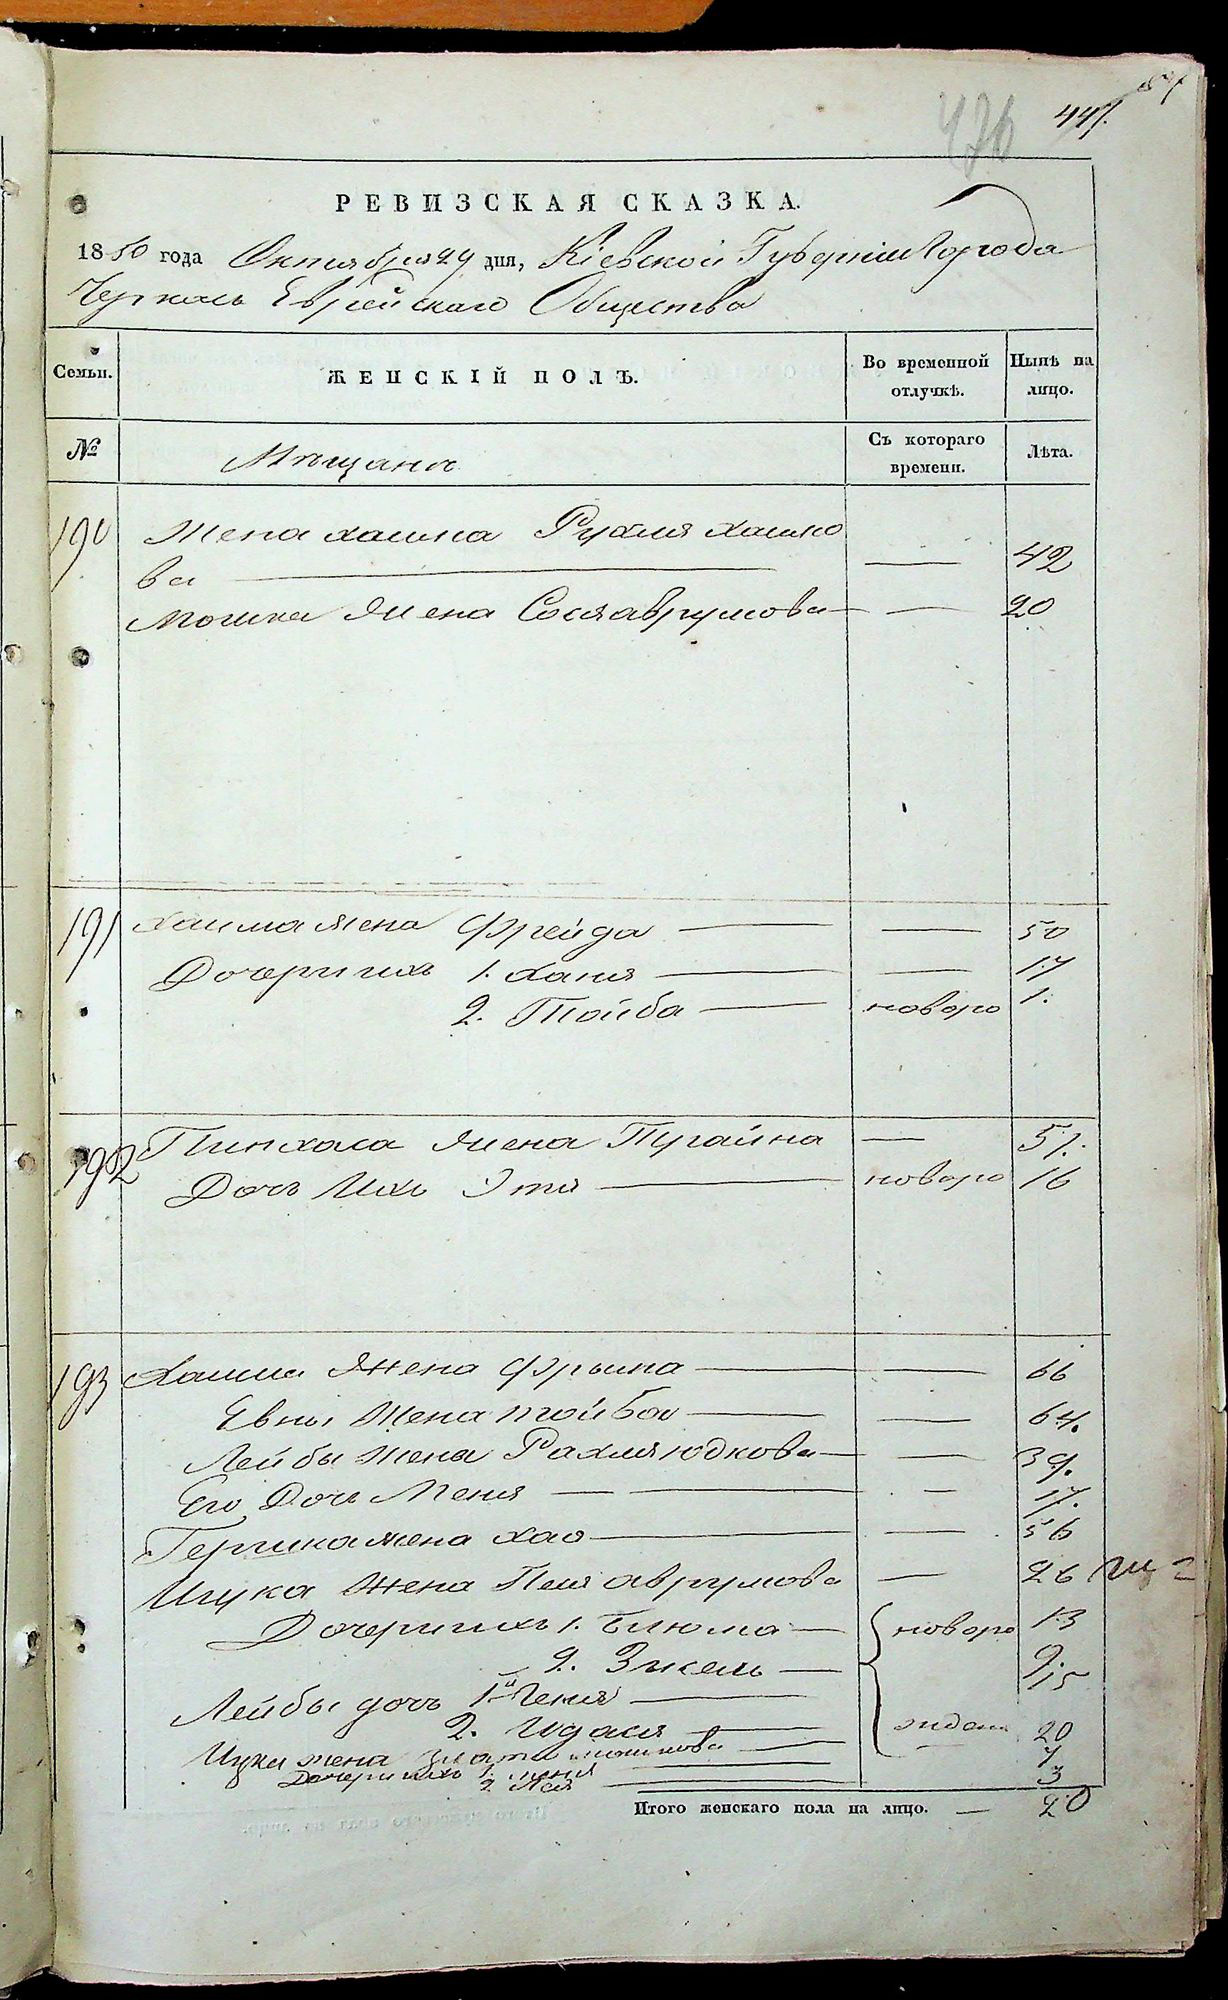 447.
476
РЕВИЗСКАЯ СКАЗКА.
1850 года Октября 29 дня, Кіевской Губерніи Города
Черкасъ Еврейскаго Общества
Семьи. ЖЕНСКІЙ ПОЛЪ. Во временной отлучкѣ. Нынѣ на лицо.
№ Мѣщане Съ котораго времени. Лѣта.
190 Жена хаима Рухля хаимо
ва — — 42
Мошка жена Сося аврумова — — 20
191 хаима жена Фрейда — — 50
Дочери ихъ 1. ханя — — 17
2. Тойба — новоро 1.
192 Пинхаса жена — 57.
Дочь Ихъ Этя — новоро 16
193 Хаима жена Фрыма — — 66
Евны жена тойба — — 64.
Лейбы жена Рахля юдкова — — 39.
Его Дочь Меня — — — 17.
Гершка жена хая — — 56
Ицка жена Песя аврумова — 26
Дочери ихъ 1. Блюма — новоро 13
2. — 9.
Лейбы дочь 1я Геня — 15
2. Идася — 20
Ицка жена Злата мошкова — 7
Дочери ихъ 1. меня 3
2.
Итого женскаго пола на лицо. — 20